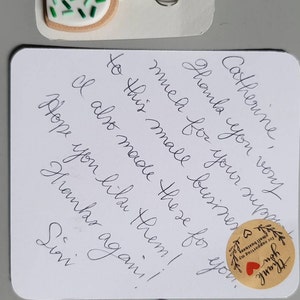 Catherine,
Thank you very
much for your support
to this small business
I also made these for you.
Hope you like them!
Thanks again!
Siri
Thank
you